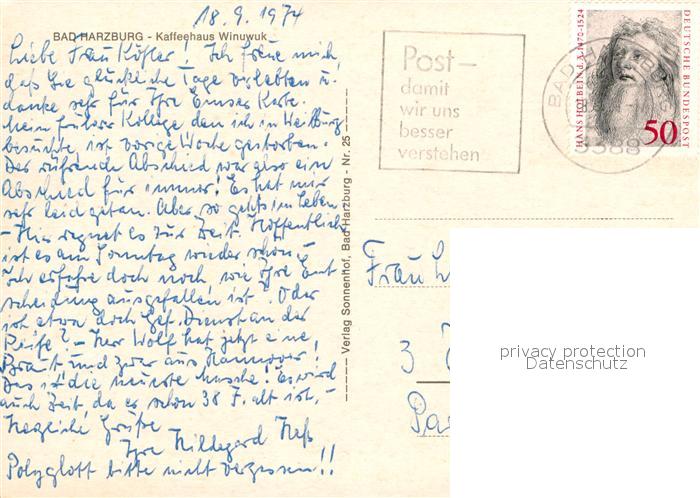 18.9.1974
BAD HARZBURG - Kaffeehaus Winuwuk
Liebe Frau Köhler! Ich freue mich,
daß Sie glückliche Tage verlebten u.
danke sehr für Ihre Emser Karte.
Mein früherer Kollege den ich in Weilburg
besuchte, ist vorige Woche gestorben.
Der rührende Abschied war also ein
Abschied für immer. Es hat mir
sehr leid getan. Aber so gehts im Leben
- Hier regnet es zur Zeit. Hoffentlich
ist es am Sonntag wieder schön -
Ich erfahre doch noch, wie Ihre Ent
scheidung ausgefallen ist. Oder
ist etwa doch Dienst an der
Reihe? - Herr Wolf hat jetzt eine
Braut und zwar aus Hannover!
Das ist die neueste Masche! Es wird
auch Zeit, da er schon 38 J. alt ist, -
Herzliche Grüße
Ihre Hildegard Heß
Polyglott bitte nicht vergessen!!
Verlag Sonnenhof, Bad Harzburg - Nr. 25
Post-
damit
wir uns
besser
verstehen
BAD HARZBURG
3388
HANS HOLBEIN d. Ä. 1470-1524
DEUTSCHE BUNDESPOST
50
Frau
3
privacy protection
Datenschutz